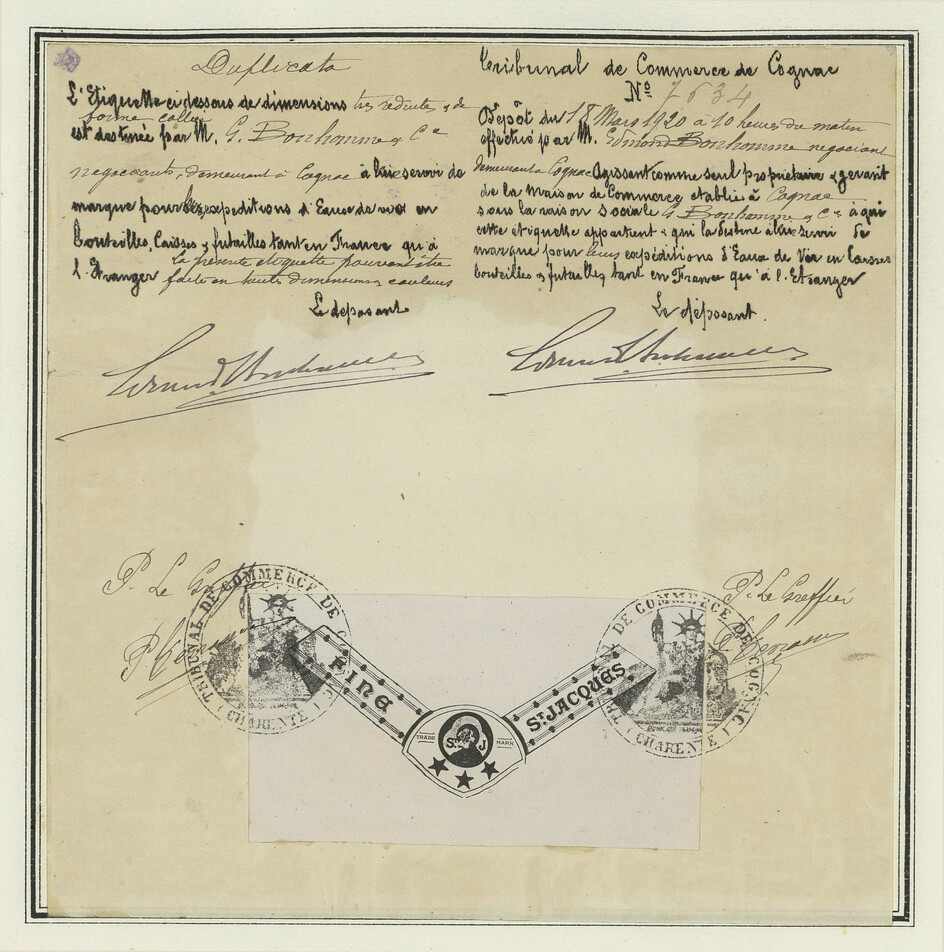 Duplicata
L'Etiquette ci dessous de dimensions très réduite, & de
forme collier
est destinée par M. G. Bonhomme & Cie
negociants, demeurant à Cognac à lui servir de
marque pour les expeditions d'Eaux de vie en
bouteilles, Caisses & futailles tant en France qu'à
l'Etranger la présente etiquette pouvant être
faite en toutes dimensions couleurs
Le déposant
Tribunal de Commerce de Cognac
No 7634
Dépot du 18 Mars 1920 à 10 heures du matin
effectué par M. Edmond Bonhomme negociant
demeurant à Cognac Agissant comme seul propriétaire & gérant
de la Maison de Commerce etablie à Cognac
sous la raison sociale G Bonhomme & Cie à qui
cette etiquette appartient & qui la destine à lui servir de
marque pour leurs expéditions d'Eaux de Vie en Caisses
bouteilles & futailles, tant en France qu'à l'Etranger
Le déposant.
P. Le Greffier
P. Le Greffier
TRIBUNAL DE COMMERCE DE
CHARENTE
DE COMMERCE DE COGNAC
CHARENTE
FINE
ST JACQUES
TRADE
MARK
St J